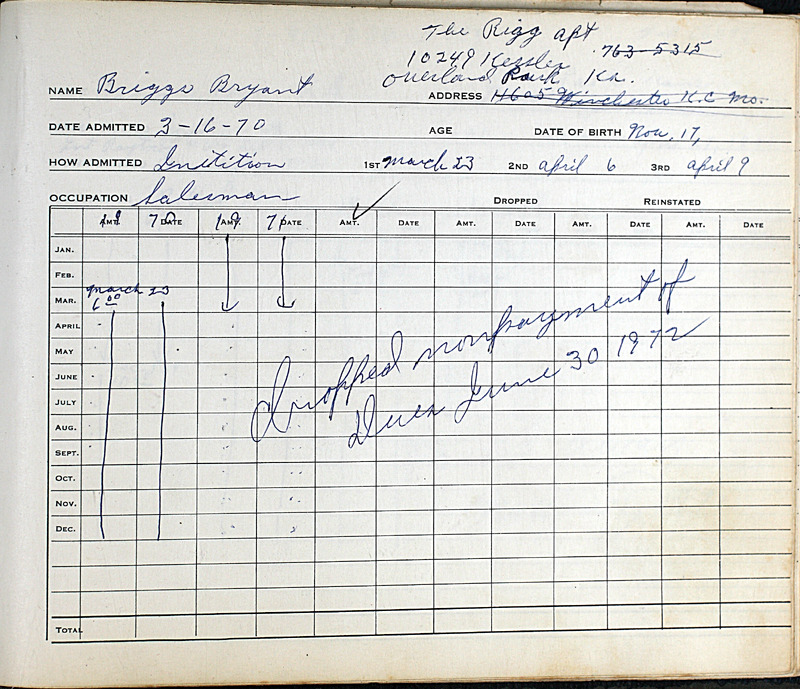 The Rigg apt
10249 Kessler 763-5315
Overland Park Ka.
NAME Briggs Bryant ADDRESS 11605 Winchester K.C. Mo.
DATE ADMITTED 3-16-70 AGE DATE OF BIRTH Nov, 17,
HOW ADMITTED Initition 1ST March 23 2ND April 6 3RD April 9
OCCUPATION Salesman DROPPED REINSTATED
AMT. 19 DATE 70 AMT. 19 DATE 71 AMT. DATE AMT. DATE AMT. DATE AMT. DATE
JAN.
FEB.
March 23
MAR. 6 00
APRIL
MAY
JUNE
JULY
AUG.
SEPT.
OCT.
NOV.
DEC.
Dropped nonpayment of
Dues June 30 1972
TOTAL